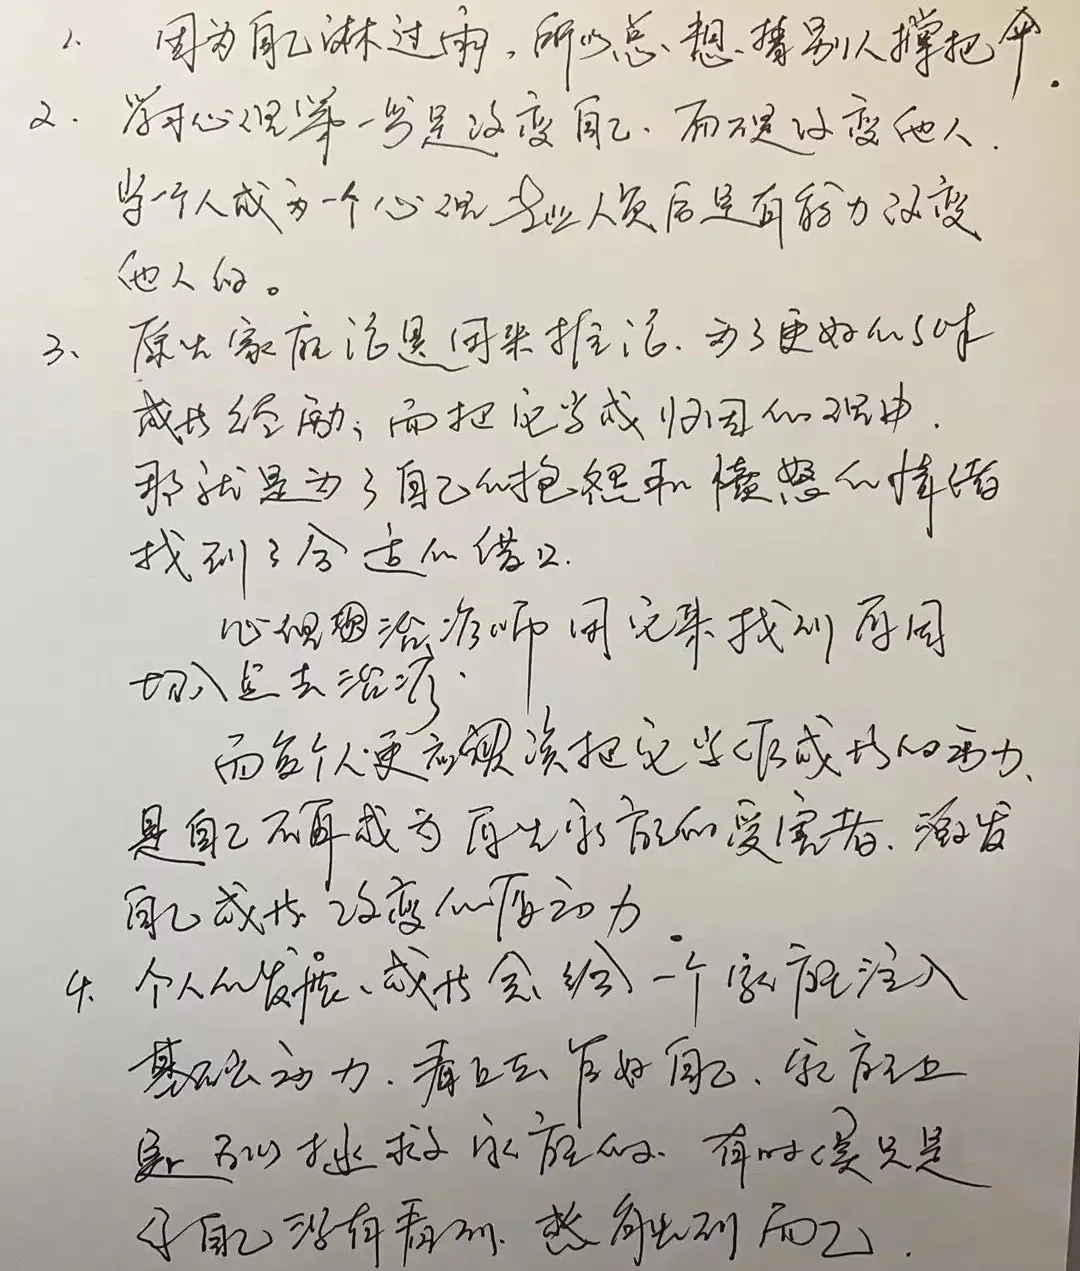 1. 因为自己淋过雨，所以总想替别人撑把伞.
2. 学习心理第一步是改变自己.而不是改变他人.
当一个人成为一个心理专业人员后是有能力改变
他人的。
3、原生家庭治是用来推治.为了更好的
成长经历,而把它当成归因的理由.
那就是为了自己的抱怨和愤怒的情绪
找到了合适的借口.
心理治疗师用它来找到原因
切入点去治疗.
而每个人更应该把它当作成长的动力、
是自己不再成为原生家庭的受害者.激发
自己成长改变的原动力.
4. 个人的发展、成长会给一个家庭注入
基础动力.看上去只好自己、家庭上
是可以拯救家庭的.有时候只是
自己没有看到.感觉到而已.